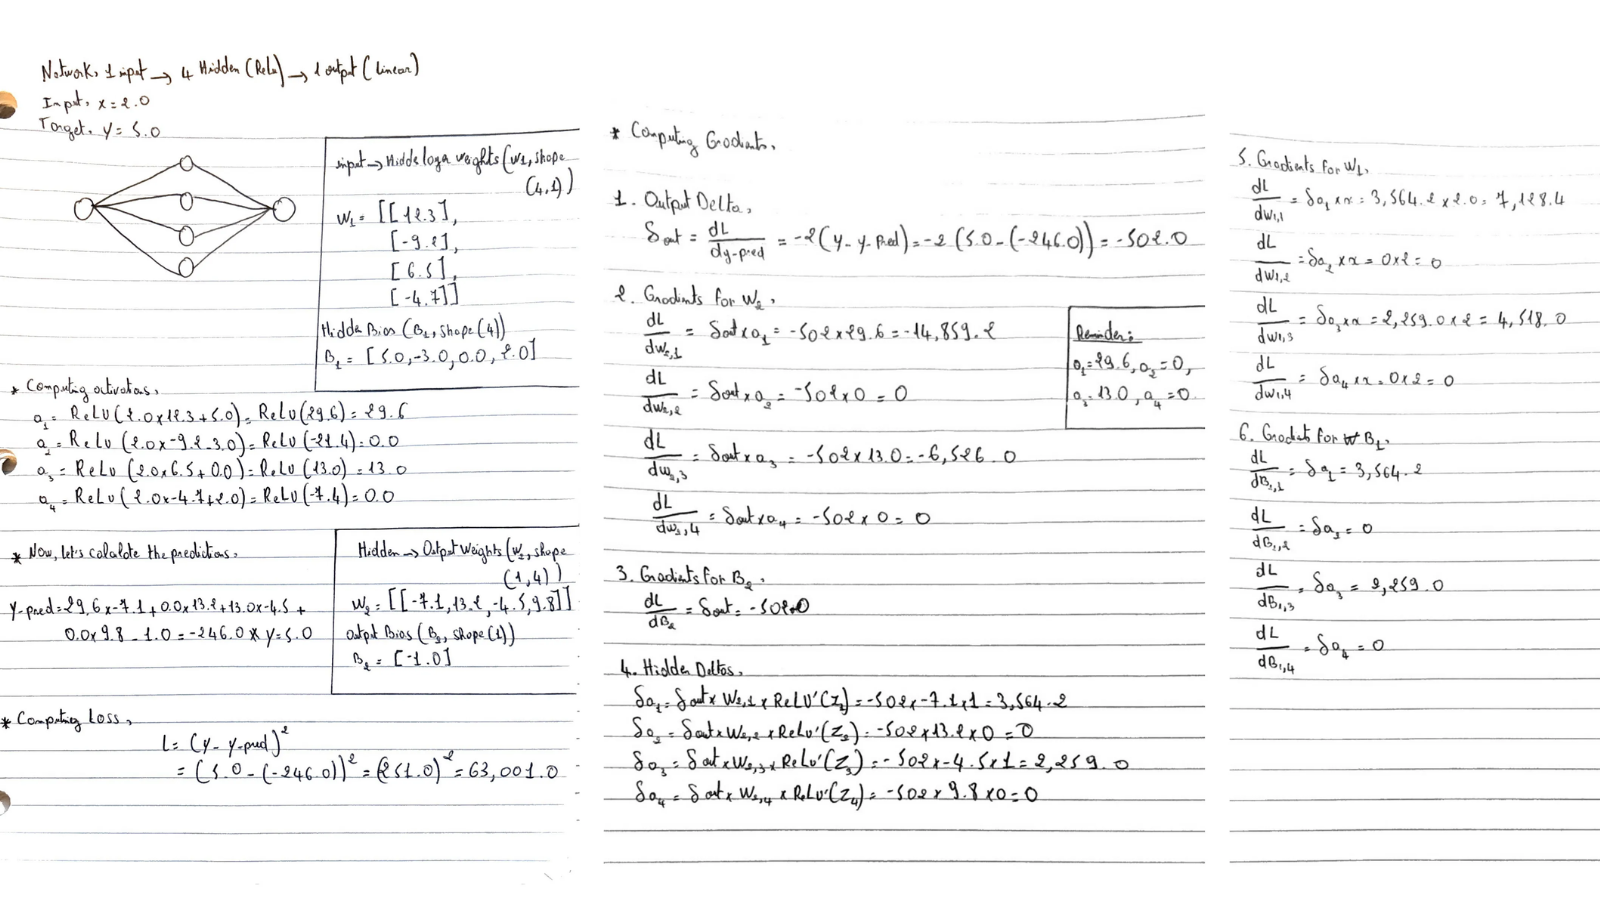 Network, 1 input → 4 Hidden (ReLu) → 1 output (linear)
Input, x = 2.0
Target, y = 5.0
input → Hidden layer weights (W1, shape
(4,1))
W1 = [[12.3],
[-9.2],
[6.5],
[-4.7]]
Hidden Bias (B1, shape (4))
B1 = [5.0, -3.0, 0.0, 2.0]
* Computing activations,
a1 = ReLU (2.0x12.3+5.0) = ReLU (29.6) = 29.6
a2 = ReLU (2.0x-9.2-3.0) = ReLU (-21.4) = 0.0
a3 = ReLU (2.0x6.5+0.0) = ReLU (13.0) = 13.0
a4 = ReLU (2.0x-4.7+2.0) = ReLU (-7.4) = 0.0
* Now, let's calculate the predictions,
y-pred = 29,6x-7.1+0.0x13.2+13.0x-4.5+
0.0x9.8-1.0 = -246.0 * y=5.0
Hidden → Output Weights (W2, shape
(1,4))
W2 = [[-7.1, 13.2, -4.5, 9.8]]
output Bias (B2, shape (1))
B2 = [-1.0]
* Computing Loss,
L = (y - y-pred)²
= (5.0 - (-246.0))² = (251.0)² = 63,001.0
* Computing Gradients,
1. Output Delta,
δout = dL/dy-pred = -2(y - y-pred) = -2(5.0-(-246.0)) = -502.0
2. Gradients for W2,
dL/dw2,1 = δout x a1 = -502x29.6 = -14,859.2
dL/dw2,2 = δout x a2 = -502x0 = 0
dL/dw2,3 = δout x a3 = -502x13.0 = -6,526.0
dL/dw2,4 = δout x a4 = -502x0 = 0
Reminder:
a1=29.6, a2=0,
a3=13.0, a4=0
3. Gradients for B2,
dL/dB2 = δout = -502.0
4. Hidden Deltas,
δa1 = δout x W2,1 x ReLU'(Z1) = -502x-7.1x1 = 3,564.2
δa2 = δout x W2,2 x ReLU'(Z2) = -502x13.2x0 = 0
δa3 = δout x W2,3 x ReLU'(Z3) = -502x-4.5x1 = 2,259.0
δa4 = δout x W2,4 x ReLU'(Z4) = -502x9.8x0 = 0
5. Gradients for W1,
dL/dw1,1 = δa1 x x = 3,564.2x2.0 = 7,128.4
dL/dw1,2 = δa2 x x = 0x2 = 0
dL/dw1,3 = δa3 x x = 2,259.0x2 = 4,518.0
dL/dw1,4 = δa4 x x = 0x2 = 0
6. Gradients for B1,
dL/dB1,1 = δa1 = 3,564.2
dL/dB1,2 = δa3 = 0
dL/dB1,3 = δa3 = 2,259.0
dL/dB1,4 = δa4 = 0